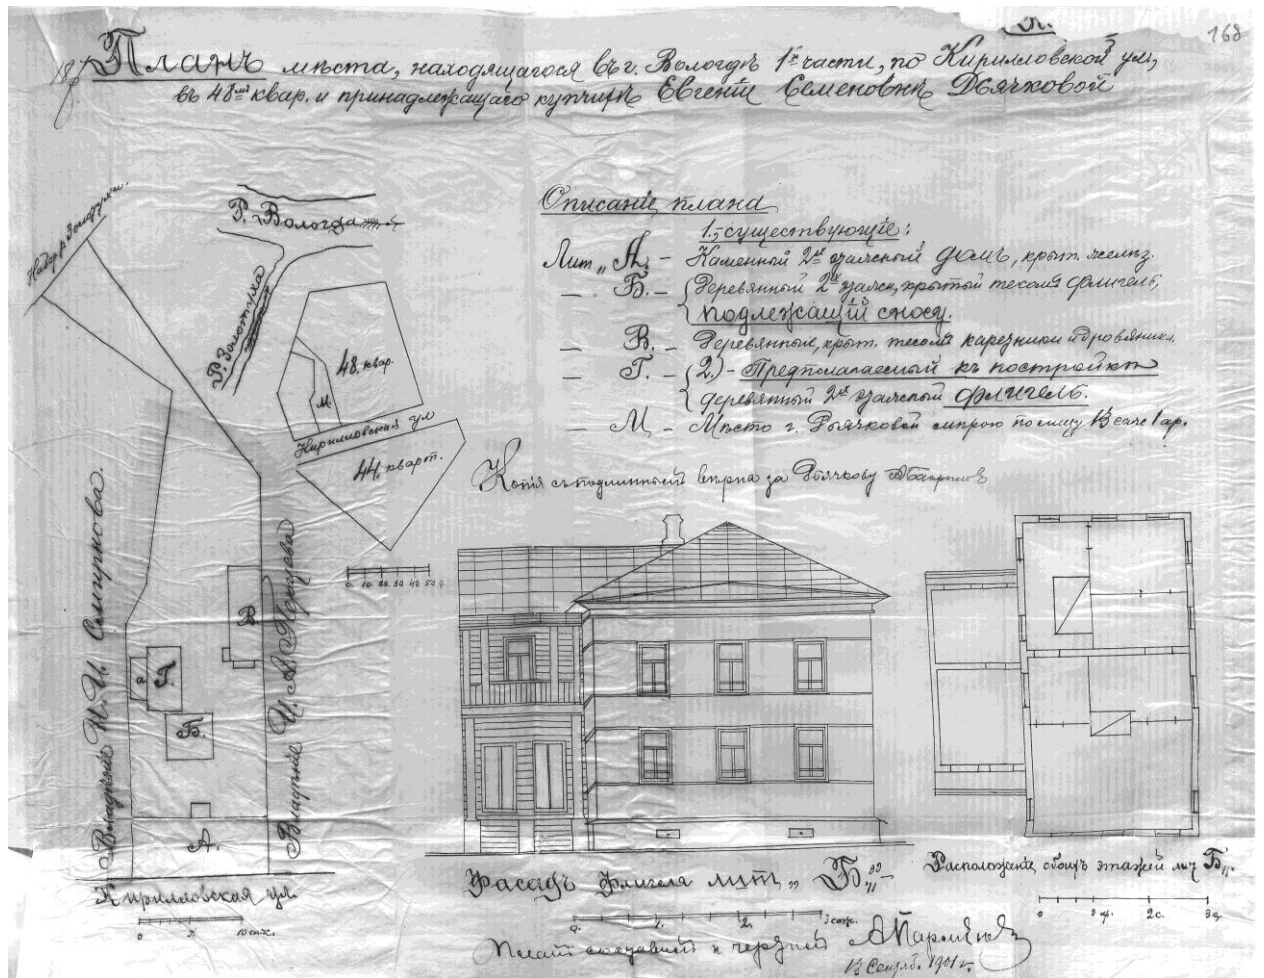 168
187
Планъ мѣста, находящагося въ г. Вологдѣ 1й части, по Кирилловской ул,
въ 48мъ квар. и принадлежащаго купчихѣ Евгеніи Семеновнѣ Дьячковой
Описаніе плана
1. существующіе:
Лит „А. – Каменный 2хъ этажный домъ, крыт. желѣз.
– Б. – Деревянный 2хъ этажн, крытый тесомъ флигель,
подлежащій сносу.
– В. – Деревянные, крыт. тесомъ каретники и дровяники.
– Г. – 2.) – Предполагаемый къ постройкѣ
деревянный 2хъ этажный флигель.
– М – Мѣсто г. Дьячковой мѣрою по лицу 13 саж 1 ар.
Копія съ подлиннымъ вѣрна за Дьячкову
Набер. р. Золотухи.
Р. Вологда
Р. Золотуха
48. квар.
М.
Кирилловская ул
44. кварт.
0. 10. 20. 30 40 50
Владѣніе И. И.
Владѣніе И. А.
В.
Б.
А.
Кирилловская ул
0 5 10 саж.
Фасадъ флигеля лит „Б„
0. 1. 2. 3 саж.
Расположеніе обоихъ этажей лит Б„
0 2с. 3с
Планъ составилъ и чертилъ
13 Сентяб. 1901 г.